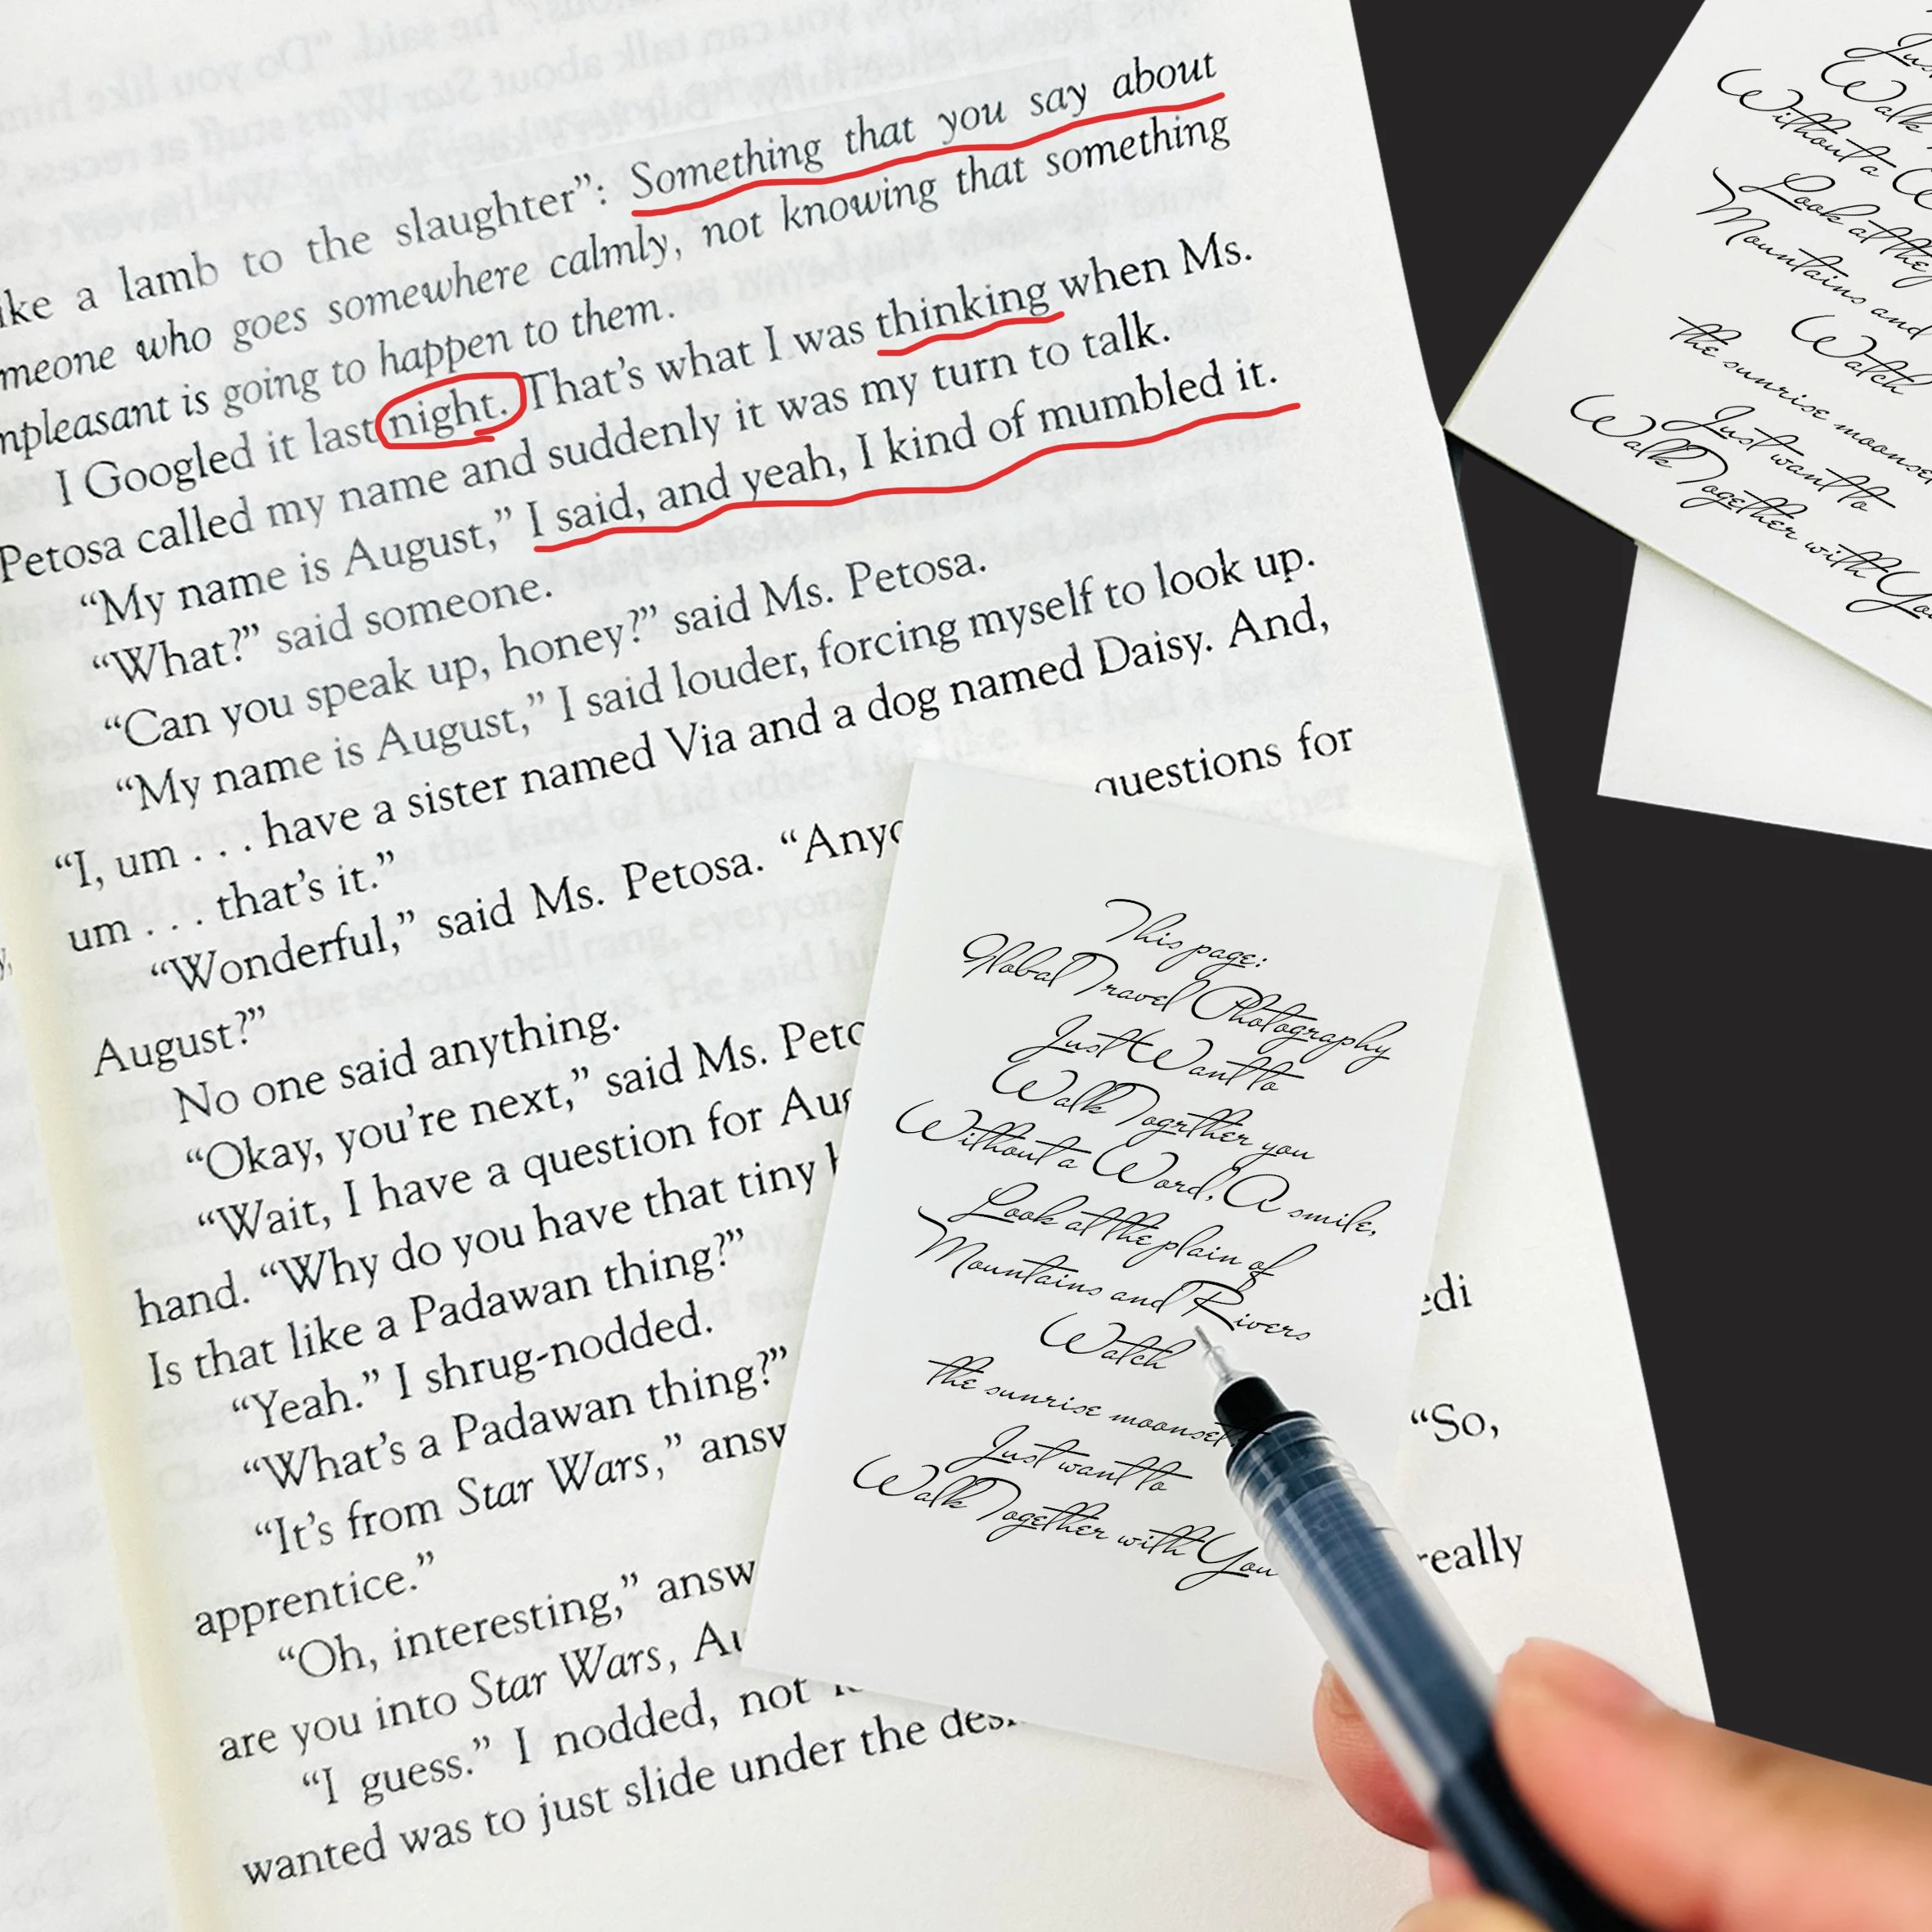 like a lamb to the slaughter”: Something that you say about
someone who goes somewhere calmly, not knowing that something
unpleasant is going to happen to them.
I Googled it last night. That’s what I was thinking when Ms.
Petosa called my name and suddenly it was my turn to talk.
“My name is August,” I said, and yeah, I kind of mumbled it.
“What?” said someone.
“Can you speak up, honey?” said Ms. Petosa.
“My name is August,” I said louder, forcing myself to look up.
“I, um . . . have a sister named Via and a dog named Daisy. And,
um . . . that’s it.”
“Wonderful,” said Ms. Petosa. “Anyo questions for
August?”
No one said anything.
“Okay, you’re next,” said Ms. Peto
“Wait, I have a question for Aug
hand. “Why do you have that tiny
Is that like a Padawan thing?”
“Yeah.” I shrug-nodded.
“What’s a Padawan thing?”
“It’s from Star Wars,” answ edi
apprentice.”
“Oh, interesting,” answ “So,
are you into Star Wars, Au
“I guess.” I nodded, not really
wanted was to just slide under the des
This page:
Global Travel Photography
Just Want to
Walk Togrther you
Without a Word, A smile,
Look at the plain of
Mountains and Rivers
Watch
the sunrise moonset.
Just want to
Walk Together with You
Jus
Walk
Without a
Look at the
Mountains and
Watch
the sunrise moonse
Just want to
Walk Together with You